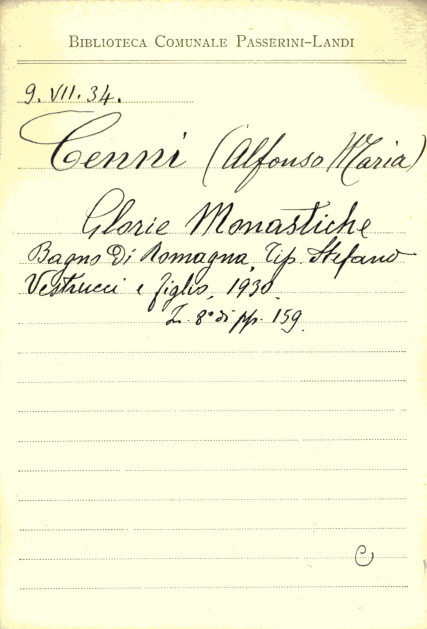 BIBLIOTECA COMUNALE PASSERINI-LANDI
9. VII. 34.
Cenni (Alfonso Maria)
Glorie Monastiche
Bagno Di Romagna, Tip. Stefano
Vestrucci e figlio, 1930.
In 8° di pp. 159.
C